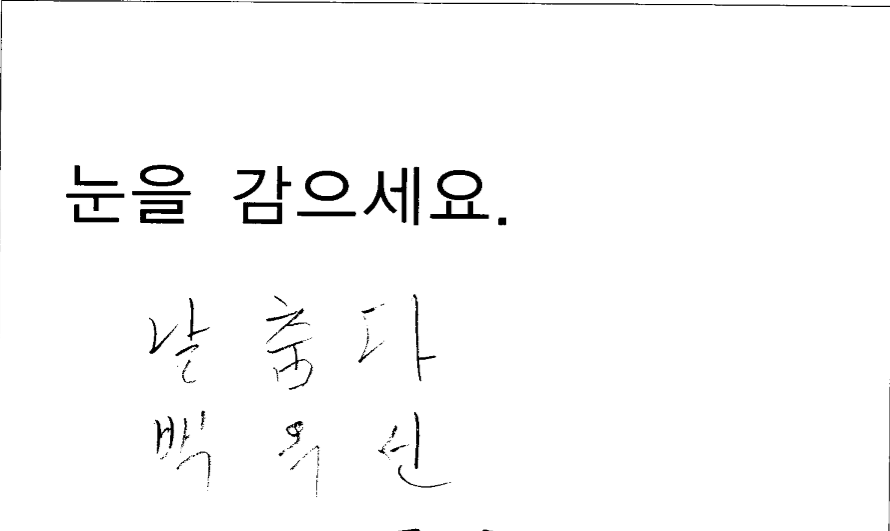 눈을 감으세요.
날 춥다
백옥선